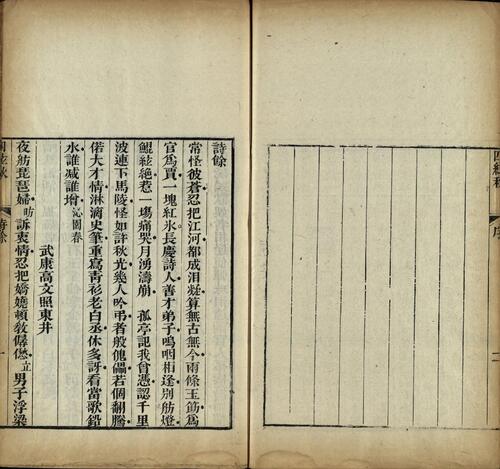 四絃秋
序
二
詩餘
常怪彼蒼忍把江河都成泪凝算無古無今兩條玉筯爲
官爲賈一塊紅氷長慶詩人善才弟子嗚咽相逢別舫燈
鯤絃絶惹一塲痛哭月湧濤崩　孤亭記我曾憑認千里
波連下馬陵怪如許秋光幾人吟弔者般傀儡若個翻騰
偌大才情淋漓史筆重寫靑衫老白丞休多訝看當歌鉛
水誰减誰增 沁園春
武康高文照東井
夜舫琵琶婦訴衷情忍把嬌嬈頓敎僝僽立男子浮梁
四絃秋
詩餘
一